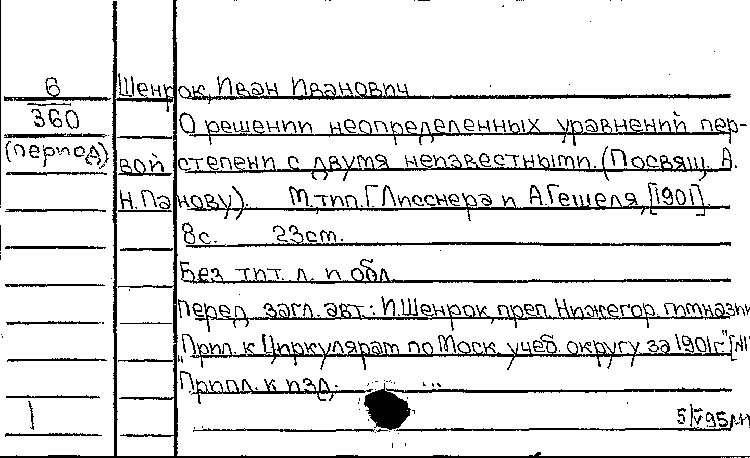 6 Шенрок, Иван Иванович
360
(период) О решении неопределенных уравнений пер-
вой степени с двумя неизвестными. (Посвящ. А.
Н. Панову). М., тип. Г. Лисснера и А. Гешеля, [1901].
8 с. 23 см.
Без тит. л. и обл.
Перед загл. авт.: И. Шенрок, преп. Нижегор. гимназии
"Прил. к Циркулярам по Моск. учеб. округу за 1901 г." [№
Припл. к изд.:
1 5/V 95